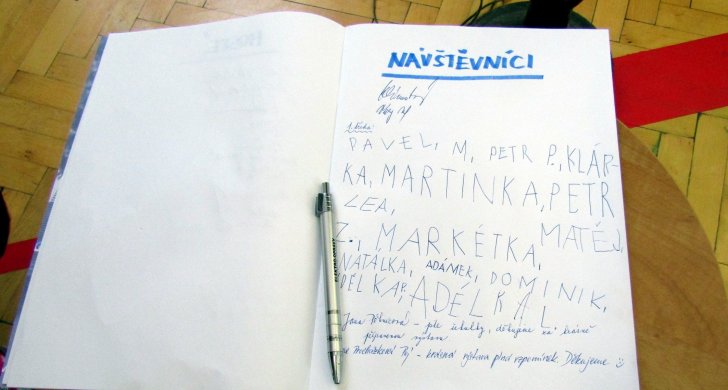 NÁVŠTĚVNÍCI
1. třída:
PAVEL, M, PETR P., KLÁR-
KA, MARTINKA, PETR
LEA,
Z., MARKÉTKA, MATĚJ,
NATÁLKA, ADÁMEK, DOMINIK,
DĚLKAP, ADÉLKA L
Jana - ple školky, děkujeme za krásně
připravenou výstavu
- krásná výstava plná vzpomínek. Děkujeme